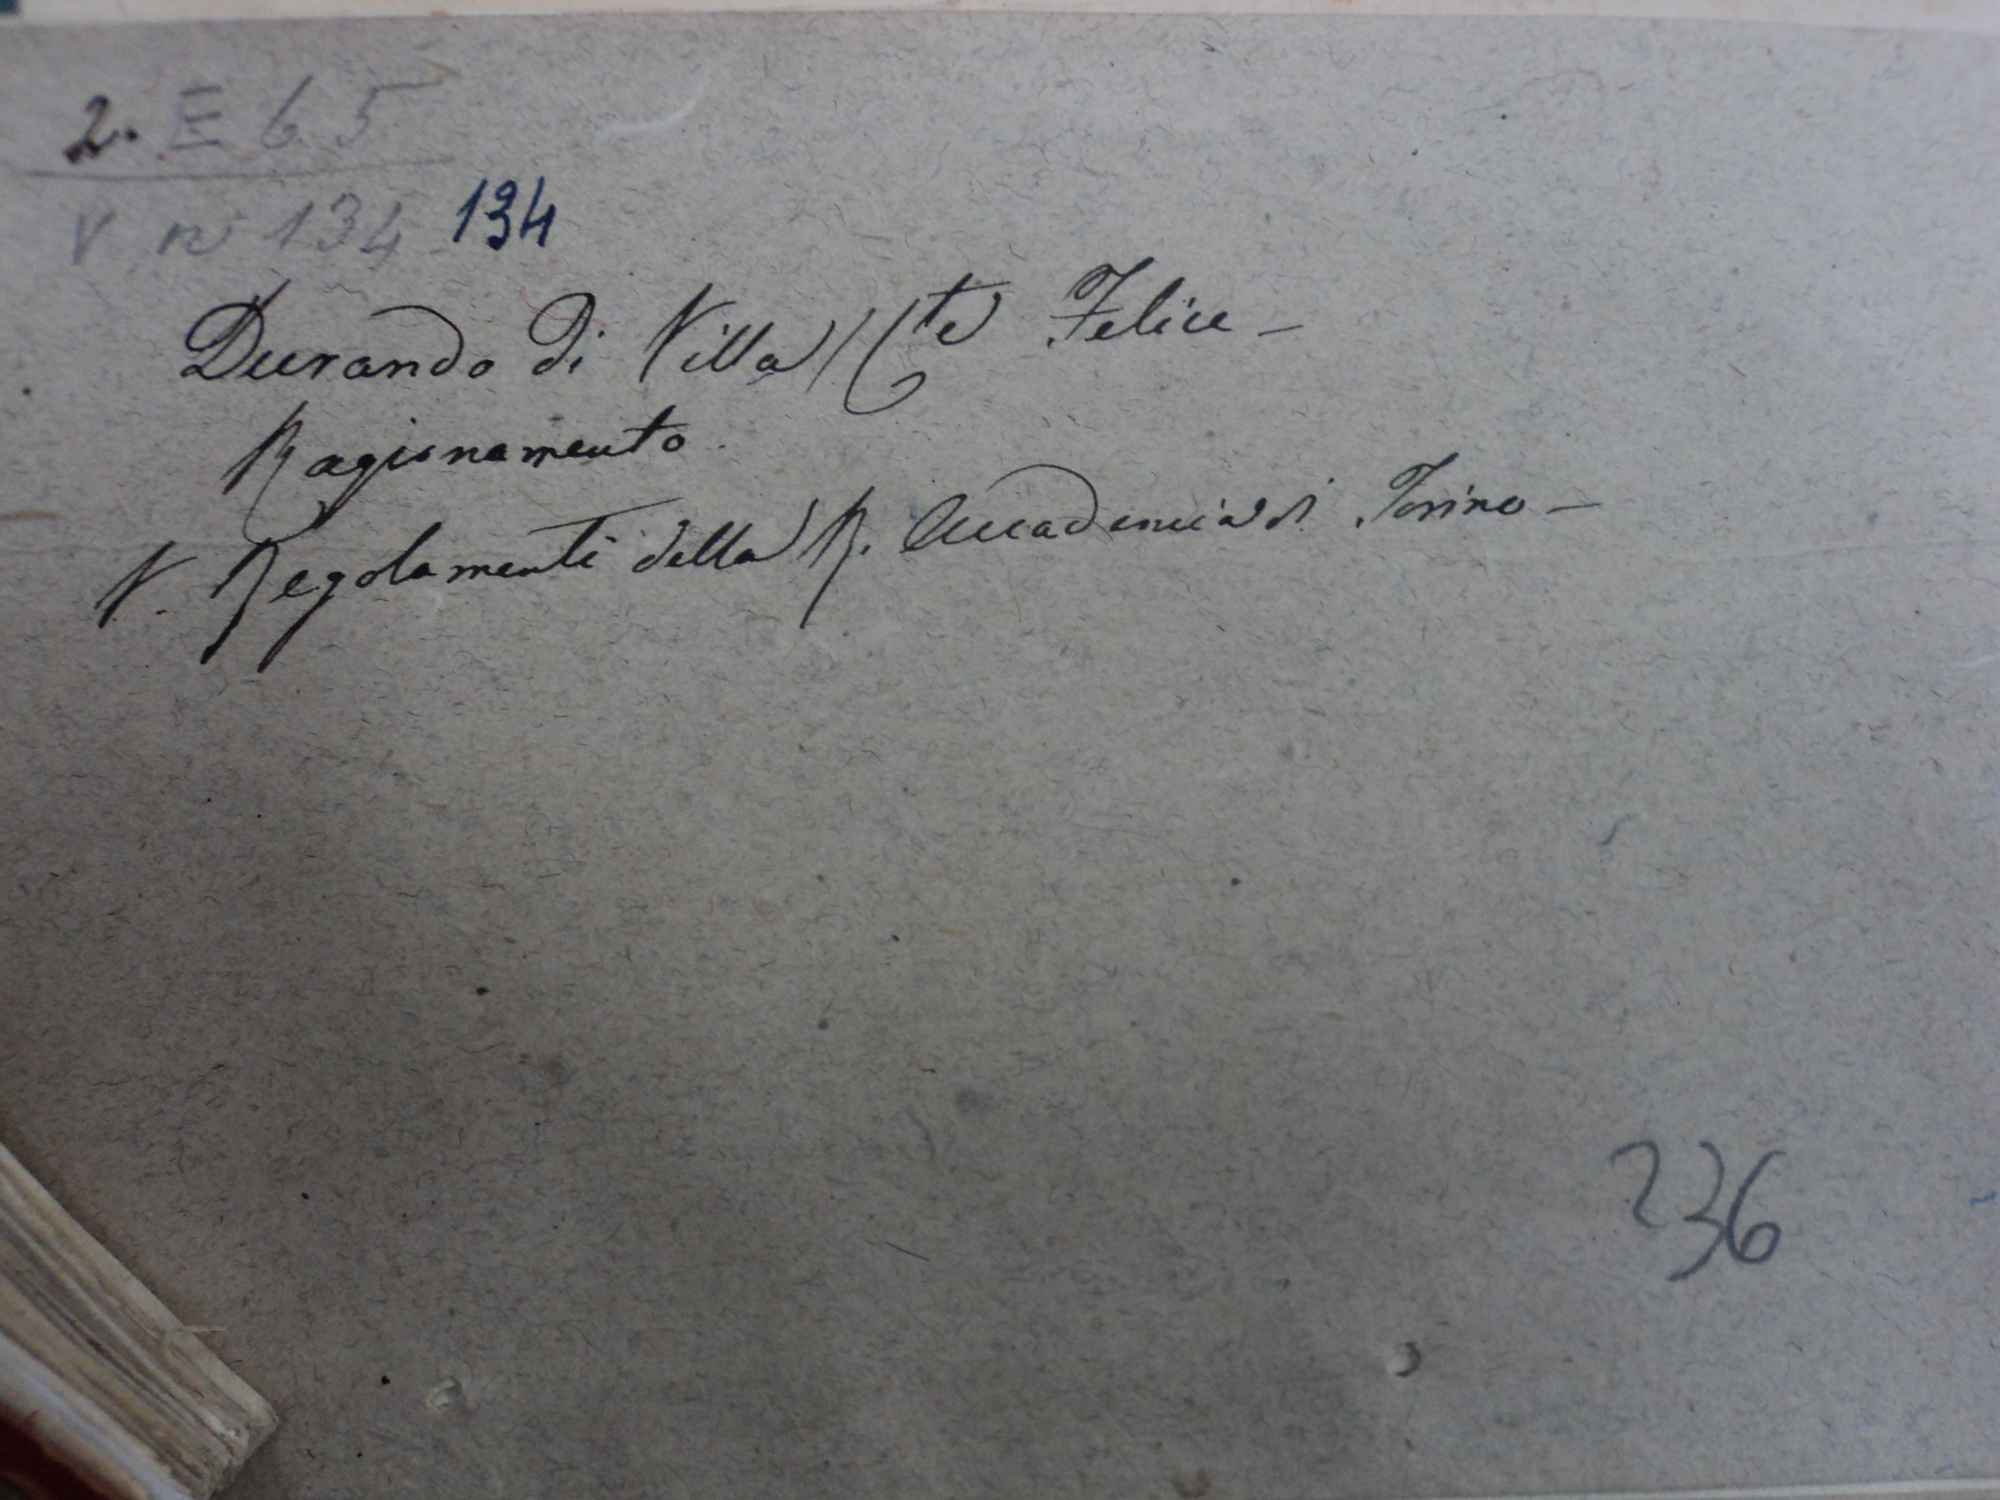 2. E 6.5
V n° 134 134
Durando di Villa / Cte Felice -
Ragionamento
V. Regolamenti della R. Accademia di Torino -
236